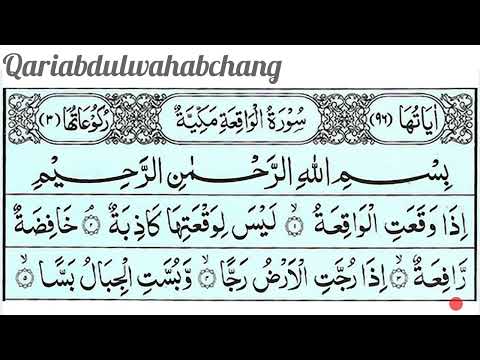 Qariabdulwahabchang
اٰیَاتُهَا (٩٦) سُوْرَةُ الْوَاقِعَةِ مَكِّيَّةٌ رُكُوْعَاتُهَا (٣)
بِسْمِ اللهِ الرَّحْمٰنِ الرَّحِيْمِ
اِذَا وَقَعَتِ الْوَاقِعَةُ ۙ﴿۱﴾ لَيْسَ لِوَقْعَتِهَا كَاذِبَةٌ ۘ﴿۲﴾ خَافِضَةٌ
رَّافِعَةٌ ۙ﴿۳﴾ اِذَا رُجَّتِ الْاَرْضُ رَجًّا ۙ﴿۴﴾ وَّبُسَّتِ الْجِبَالُ بَسًّا ۙ﴿۵﴾